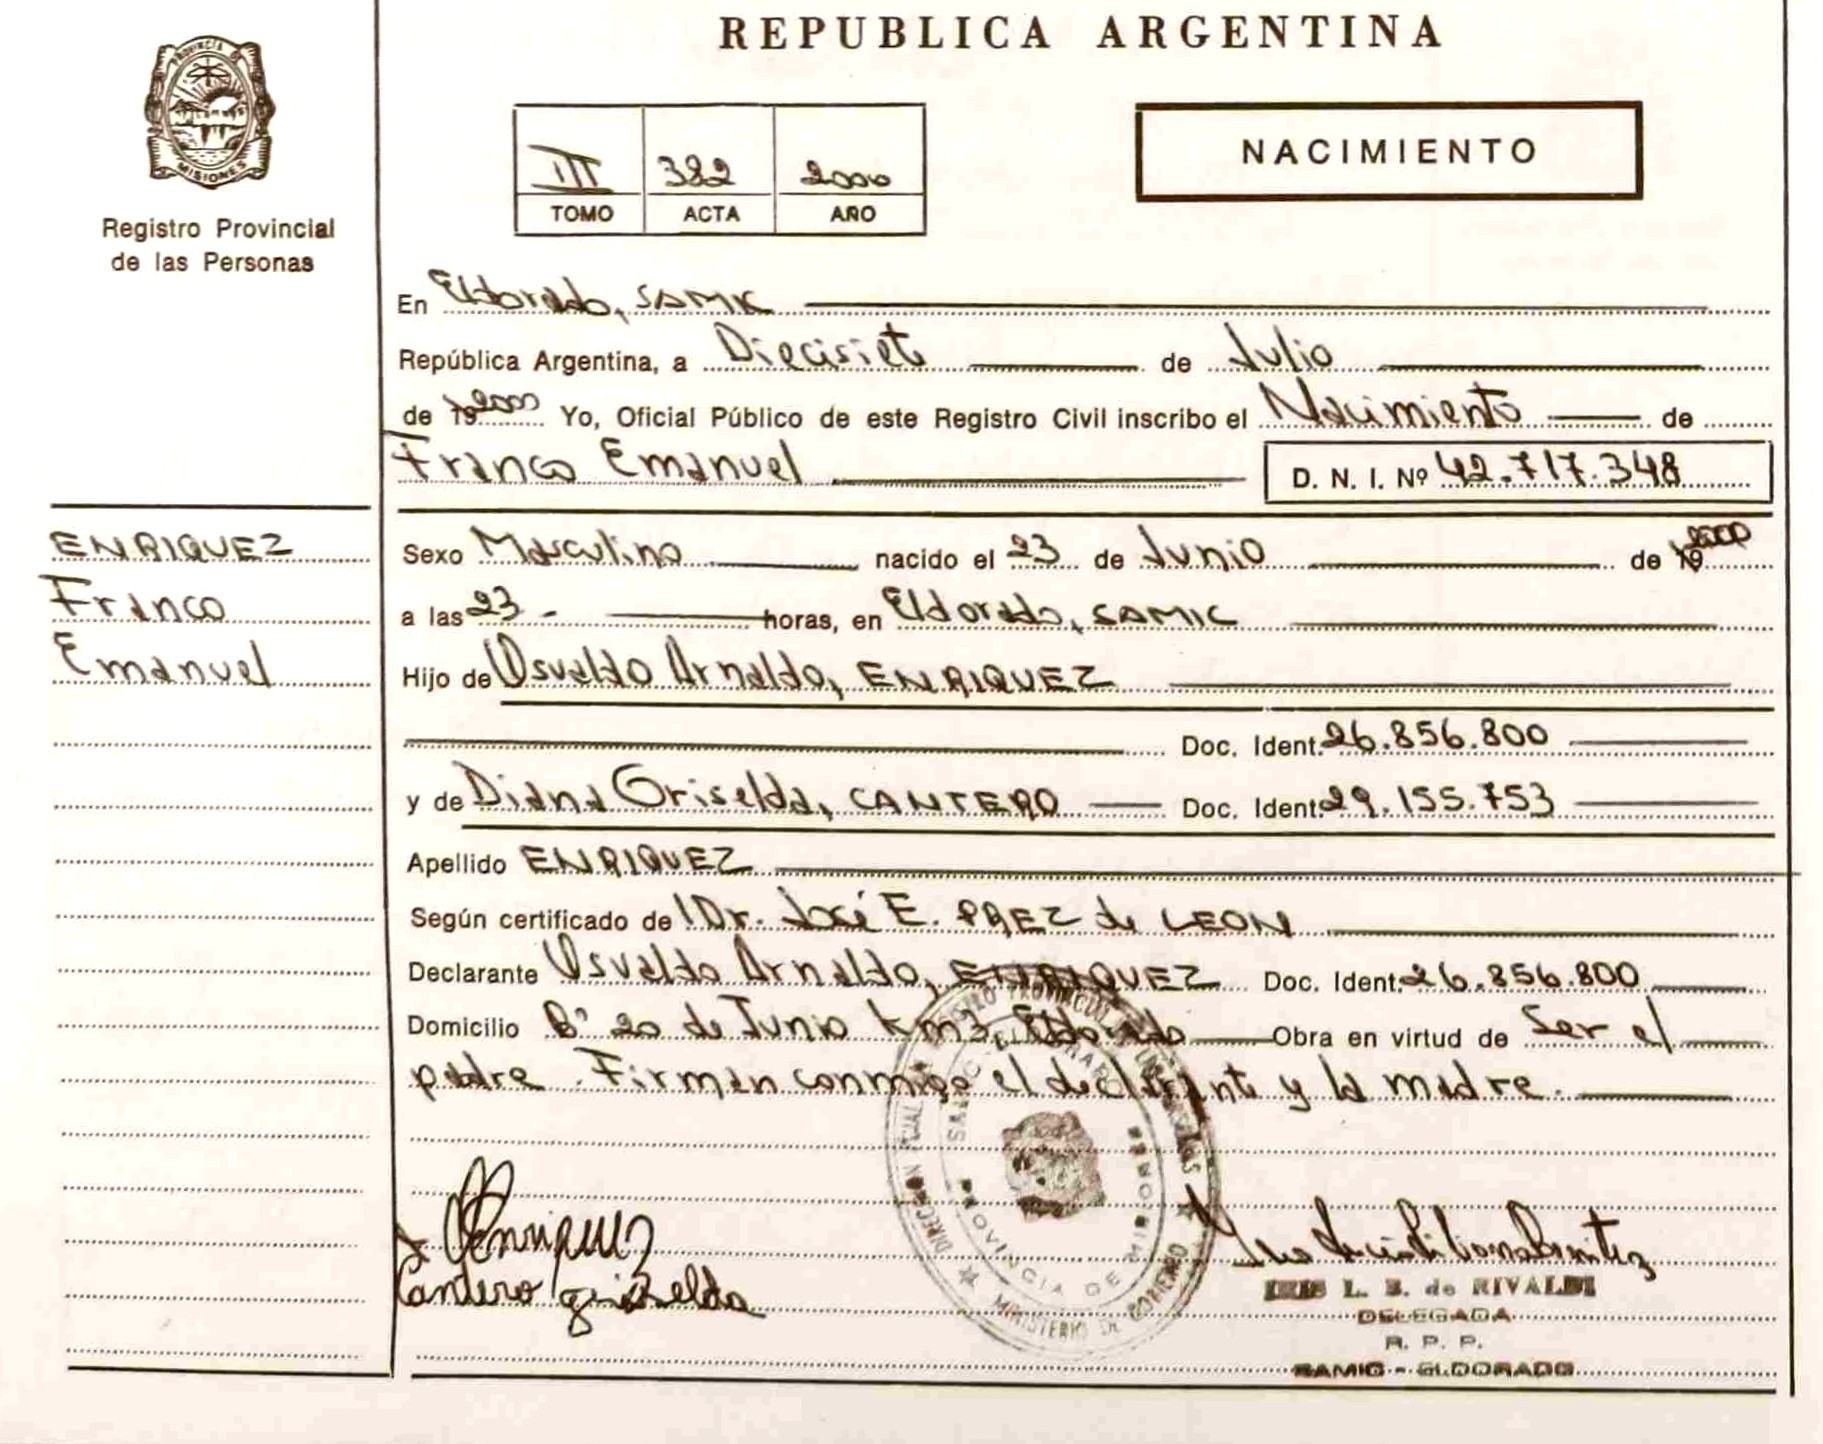 REPUBLICA ARGENTINA
PROVINCIA DE
MISIONES
Registro Provincial
de las Personas
III 382 2000
TOMO ACTA AÑO
NACIMIENTO
En Eldorado, SAMIC
República Argentina, a Diecisiete de Julio
de 19 2000 Yo, Oficial Público de este Registro Civil inscribo el Nacimiento de
Franco Emanuel D. N. I. Nº 42.717.348
ENRIQUEZ
Franco
Emanuel
Sexo Masculino nacido el 23 de Junio de 19 2000
a las 23.- horas, en Eldorado, SAMIC
Hijo de Osvaldo Arnaldo, ENRIQUEZ
Doc. Ident. 26.856.800
y de Diana Griselda, CANTERO Doc. Ident. 29.155.753
Apellido ENRIQUEZ
Según certificado de Dr. José E. PAEZ de LEON
Declarante Osvaldo Arnaldo, ENRIQUEZ Doc. Ident. 26.856.800
Domicilio Bº 20 de Junio Km3, Eldorado Obra en virtud de Ser el
padre. Firman conmigo el declarante y la madre.
Enriquez
Cantero Griselda
DIRECCION REGISTRO PROVINCIAL DE LAS PERSONAS
MINISTERIO DE GOBIERNO
PROVINCIA DE MISIONES
IRIS L. B. de RIVALDI
DELEGADA
R. P. P.
SAMIC - ELDORADO